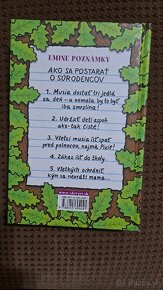 EMINE POZNÁMKY
AKO SA POSTARAŤ
O SÚRODENCOV
1. Musia dostať tri jedlá
za deň – a nemala by to byť
iba zmrzlina!
2. Udržať deti aspoň
ako-tak čisté!
3. Všetci musia ísť spať
pred polnocou, najmä
4. Zákaz ísť do školy.
5. Všetkých odvšiviť,
kým sa nevráti mama...